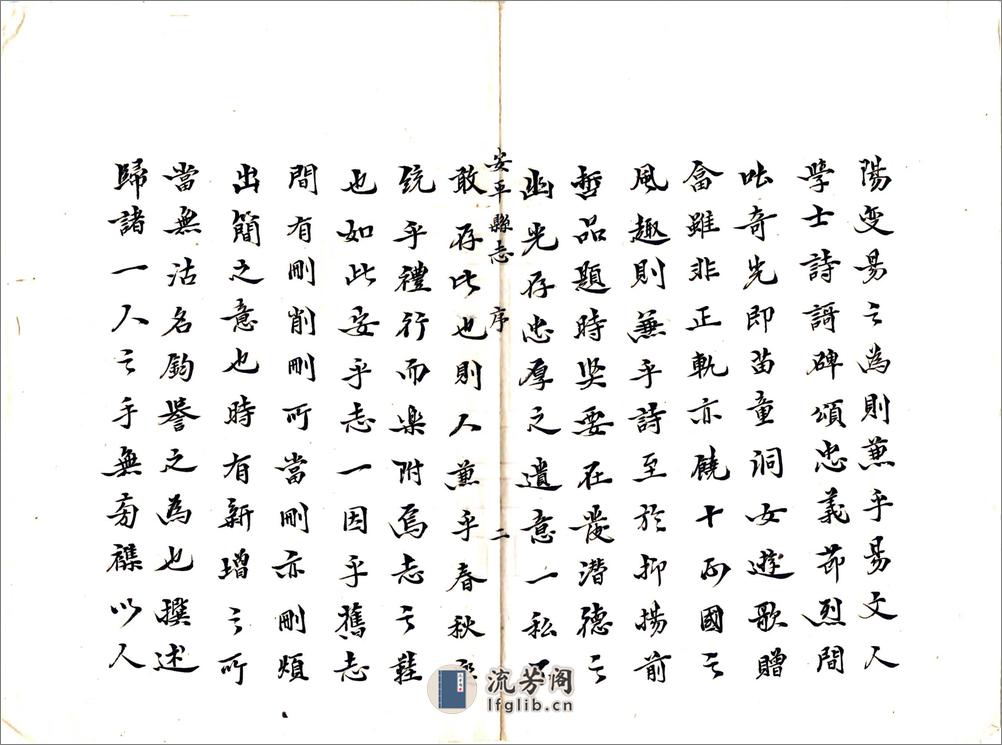 陽变易之為則兼乎易文人
學士詩謌碑頌忠義節烈間
吐奇先即苗童洞女遊歌贈
畣雖非正軌亦饒十五國之
風趣則兼乎詩至於抑揚前
哲品題時奖要在發潛德之
幽光存忠厚之遺意一私
敢存此也則人兼乎春秋
安平縣志 序 二
統乎禮行而樂附焉志之難
也如此妥乎志一因乎舊志
間有刪削刪所當刪亦刪煩
出簡之意也時有新增之所
當無沽名鈞譽之為也撰述
歸諸一人之手無旁襍以人
流芳阁
lfglib.cn